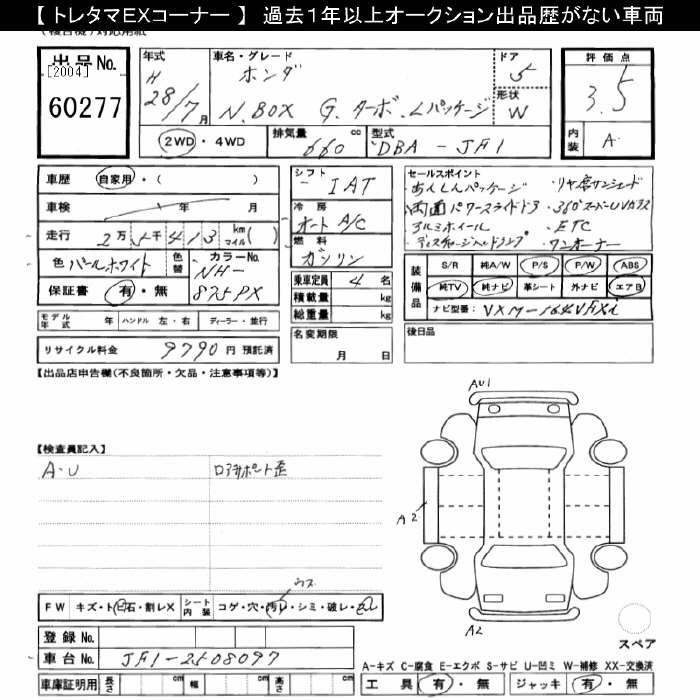 【 トレタマＥＸコーナー 】 過去１年以上オークション出品歴がない車両
出品No.
[2004]
60277
年式
H
28/7月
車名・グレード
ホンダ
N.BOX G.ターボ.Lパッケージ
ドア
5
形状
W
評価点
3.5
内装
A
2WD・4WD
排気量
660 cc
型式
DBA-JF1
車歴 自家用・( )
車検 年 月
走行 2万5千413 km マイル( )
色 パールホワイト
色替
カラーNo.
NH-875PX
保証書 有・無
モデル年式 年 ハンドル 左・右 ディーラー・並行
リサイクル料金 9790 円 預託済
シフト
IAT
冷房
オート A/C
燃料
ガソリン
乗車定員 4 名
積載量 kg
総重量 kg
名変期限
月 日
セールスポイント
・あんしんパッケージ ・リヤ席サンシェード
・両面パワースライドドア ・360°スーパーUVガラス
・アルミホイール ・ETC
・ディスチャージヘッドランプ ・ワンオーナー
装備品
S/R 純A/W P/S P/W ABS
純TV 純ナビ 革シート 外ナビ エアB
ナビ型番 VXM-164VFXi
後日品
【出品店申告欄(不良箇所・欠品・注意事項等)】
【検査員記入】
A-U
ロアサポート歪
AU1
A2
A2
スペア
FW キズ・ト ビ石・割レX
シート内装 コゲ・穴・汚レ・シミ・破レ
ウス
登録No.
車台No. JF1-2508097
車庫証明用 長さ cm 幅 cm 高さ cm
A-キズ C-腐食 E-エクボ S-サビ U-凹ミ W-補修 XX-交換済
工具 有・無 ジャッキ 有・無